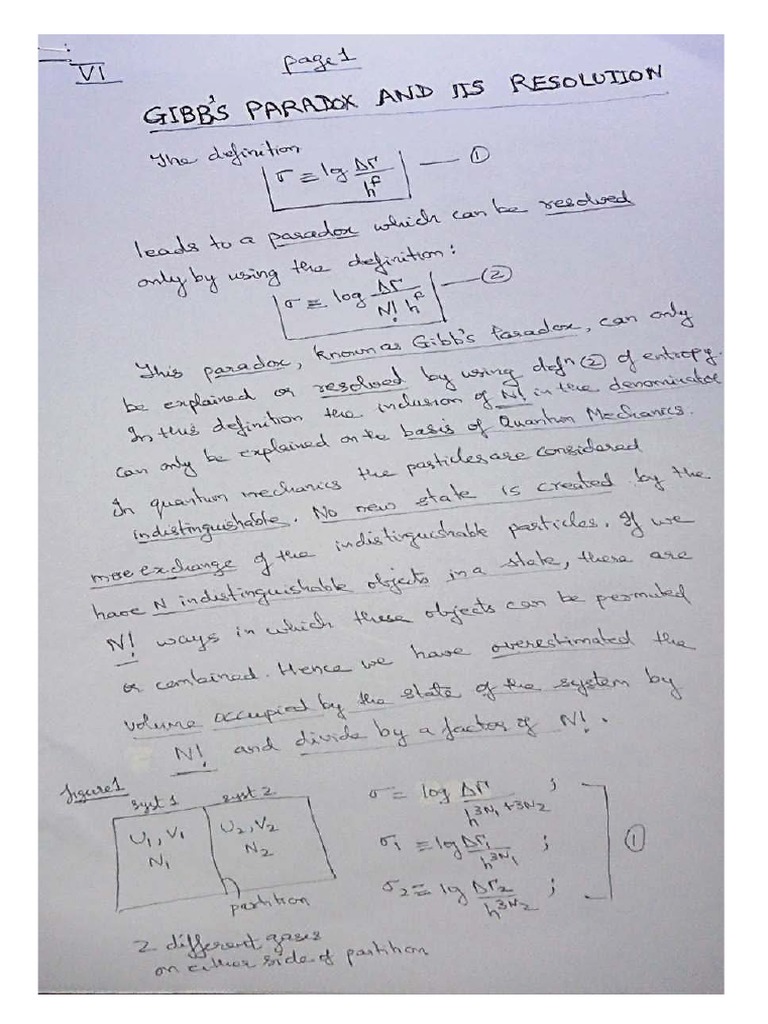 VI
page 1
GIBB'S PARADOX AND ITS RESOLUTION
The definition
σ ≡ log ΔΓ / h^f — ①
leads to a paradox which can be resolved
only by using the definition:
σ ≡ log ΔΓ / N! h^f — ②
This paradox, known as Gibb's Paradox, can only
be explained or resolved by using defn ② of entropy.
In this definition the inclusion of N! in the denominator
can only be explained on the basis of Quantum Mechanics.
In quantum mechanics the particles are considered
indistinguishable. No new state is created by the
mere exchange of the indistinguishable particles. If we
have N indistinguishable objects in a state, there are
N! ways in which these objects can be permuted
or combined. Hence we have overestimated the
volume occupied by the state of the system by
N! and divide by a factor of N!.
figure 1
syst 1 syst 2
U1, V1
N1
U2, V2
N2
partition
2 different gases
on either side of partition
σ = log ΔΓ / h^3N1+3N2 ;
σ1 ≡ log ΔΓ1 / h^3N1 ;
σ2 ≡ log ΔΓ2 / h^3N2 ;
①